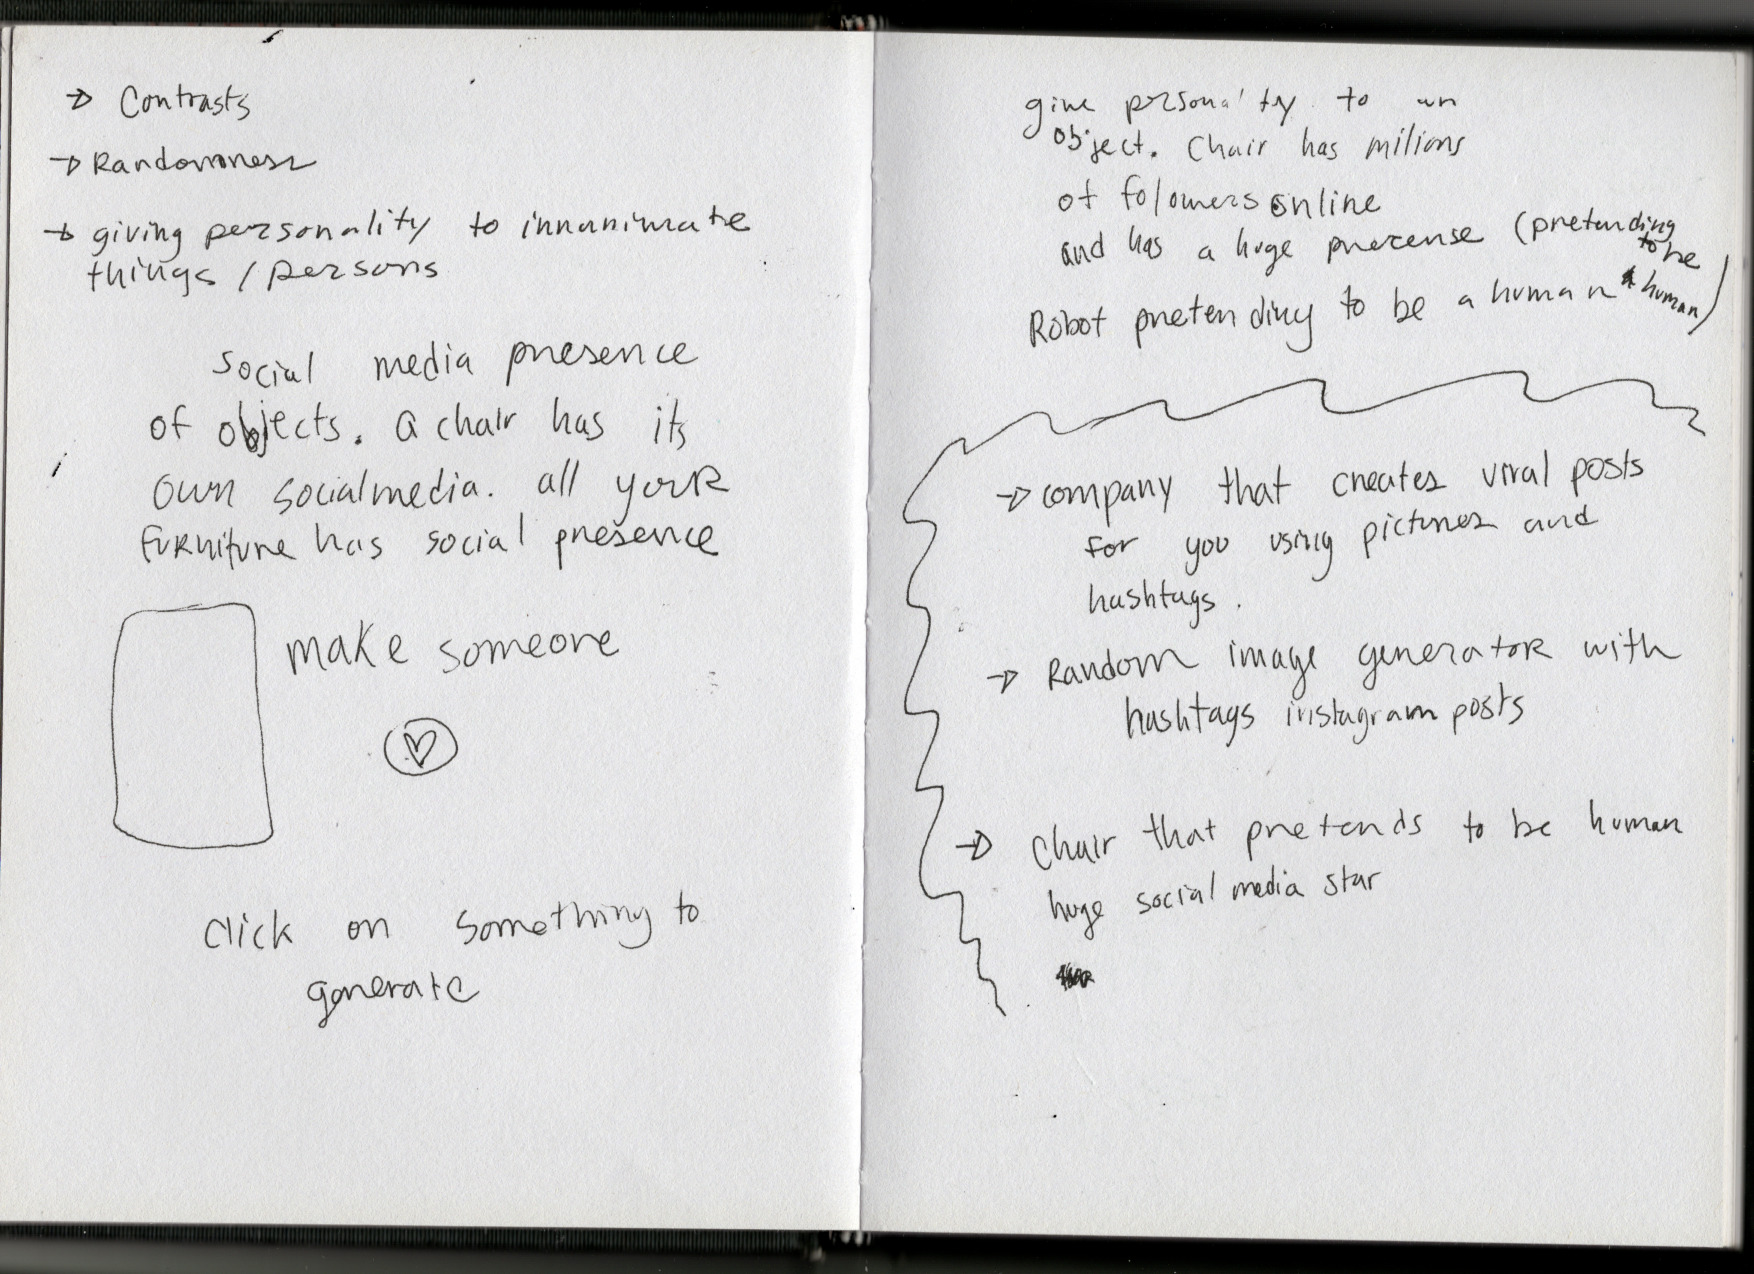 → Contrasts
→ Randomness
→ giving personality to innanimate
things / persons
social media presence
of objects. a chair has its
own socialmedia. all your
furniture has social presence
make someone
click on something to
generate
give personality to an
object. Chair has milions
of folowers online
and has a huge precense (pretending
to be
a human)
Robot pretending to be a human
→ company that creates viral posts
for you using pictures and
hashtags.
→ Random image generator with
hashtags instagram posts
→ Chair that pretends to be human
huge social media star